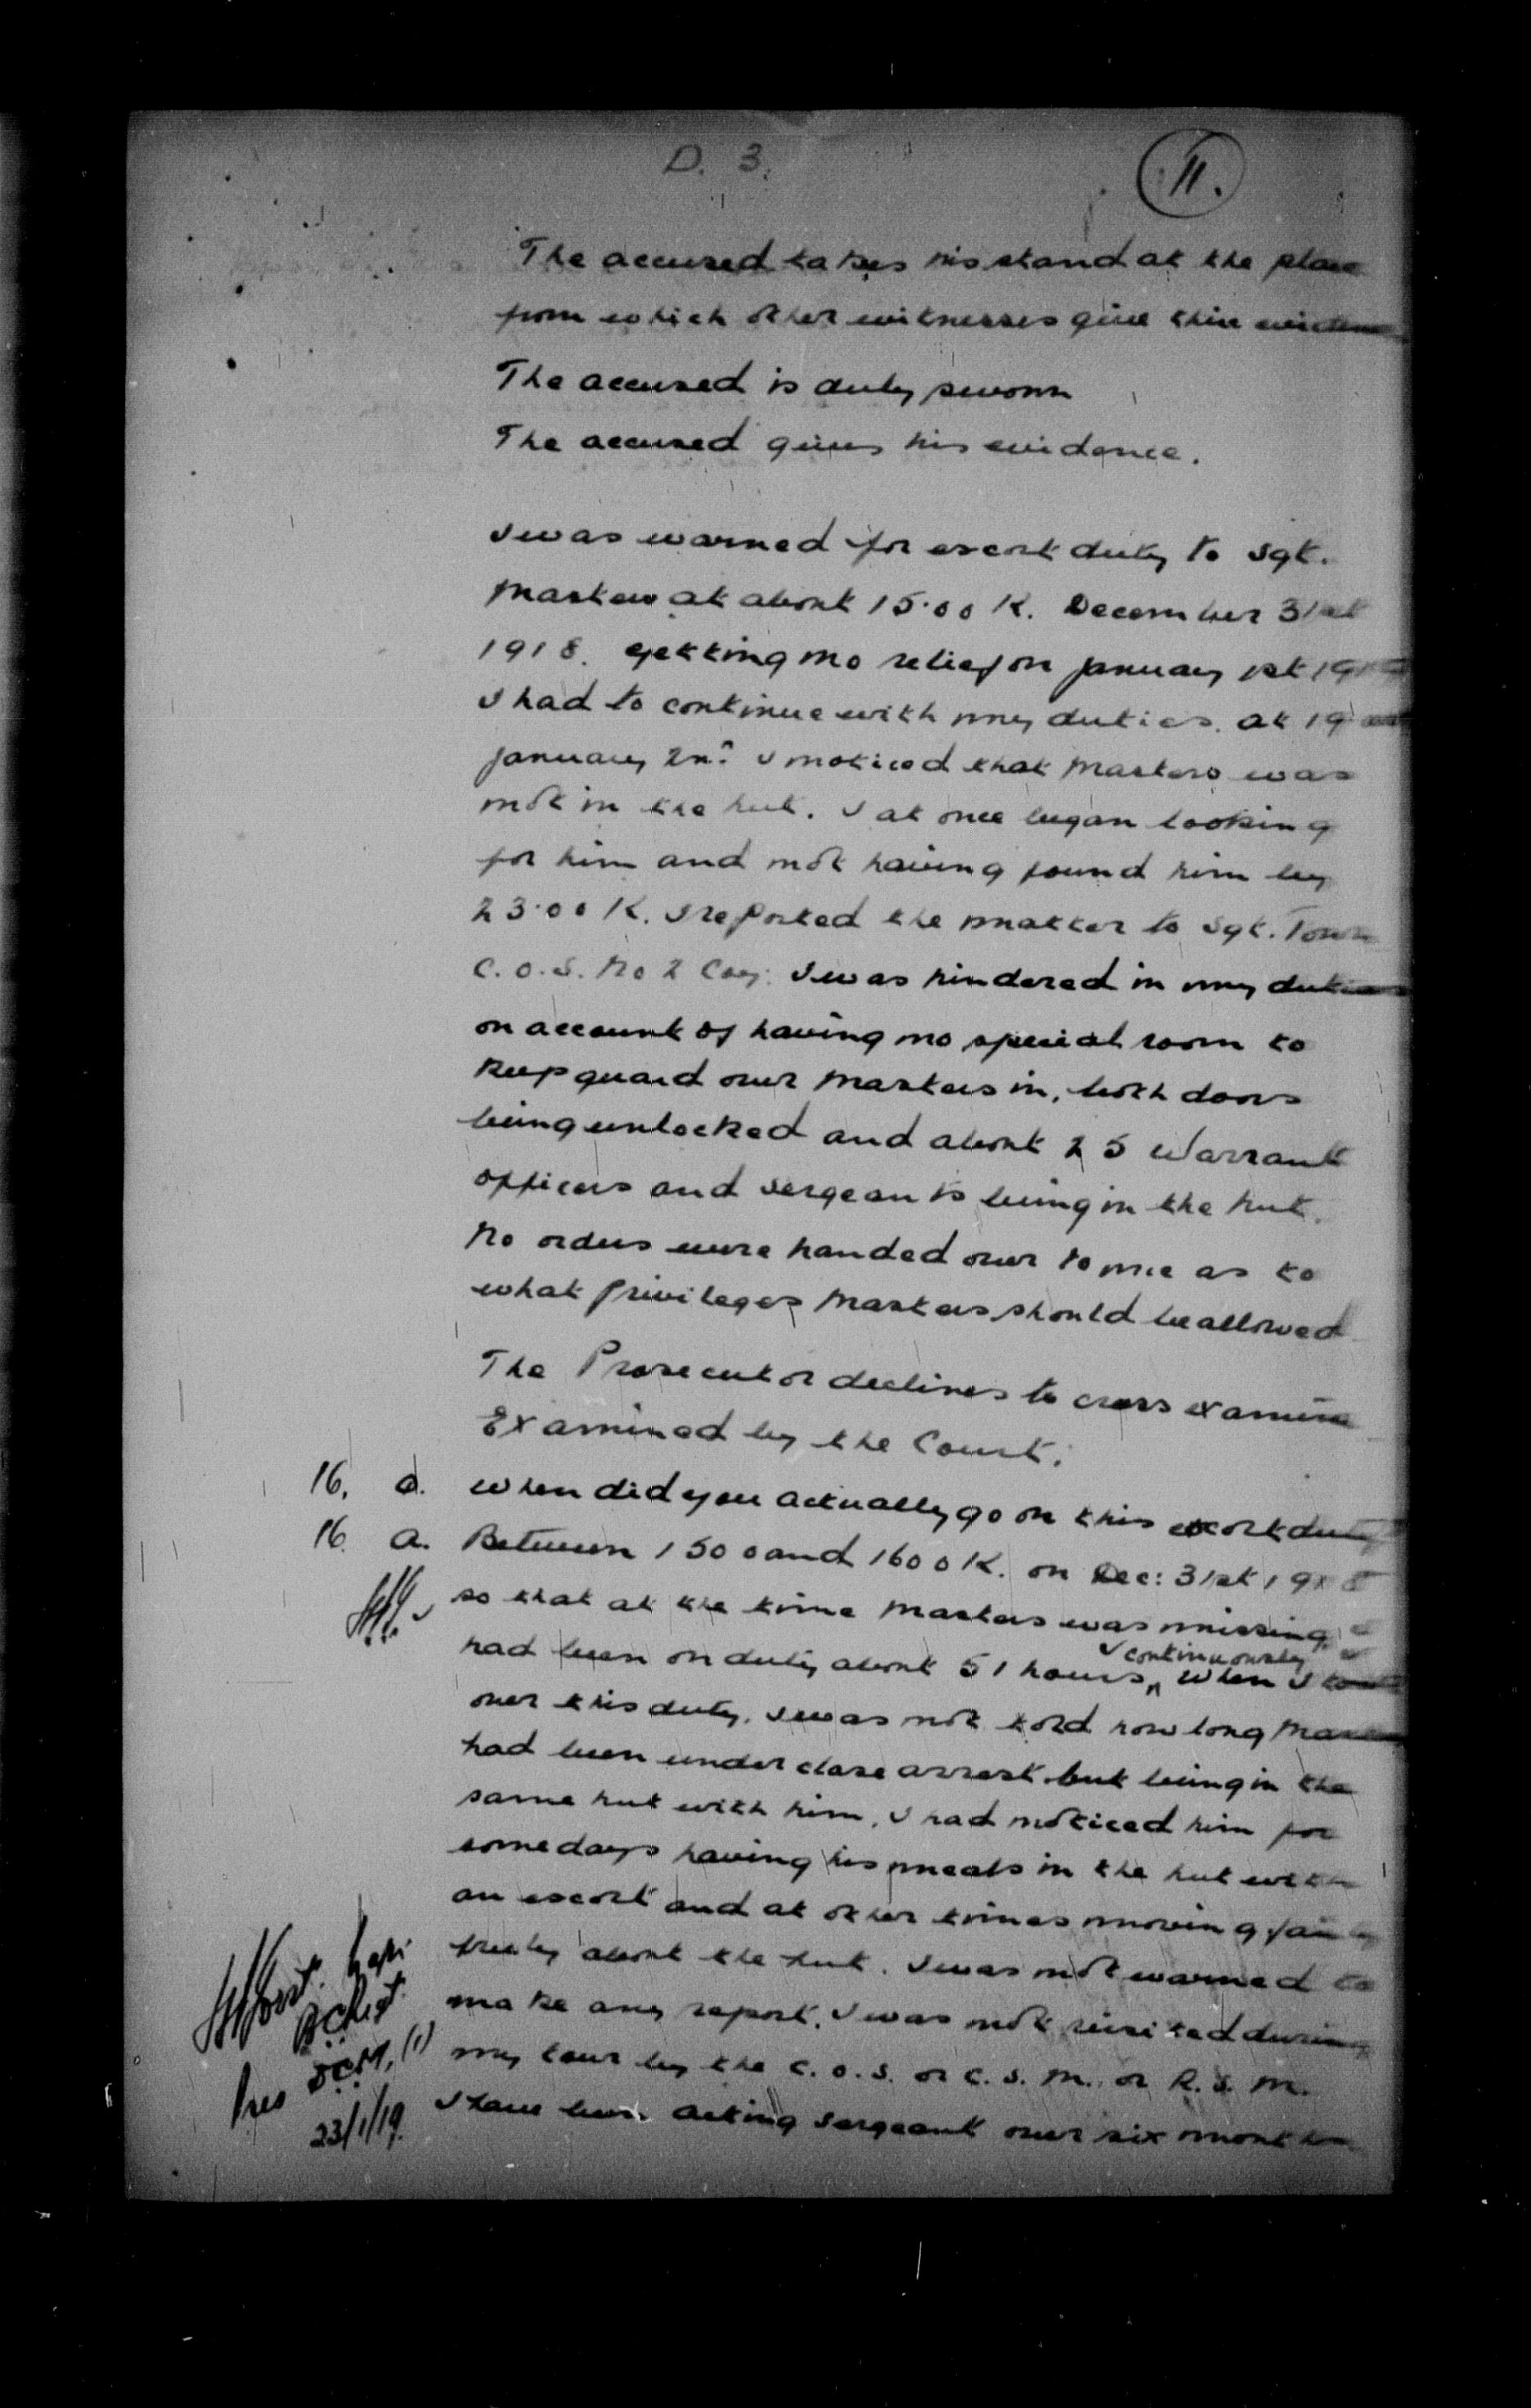 D. 3.
11.
The accused takes his stand at the place
from which other witnesses give their evidence
The accused is duly sworn
The accused gives his evidence.
I was warned for escort duty to Sgt.
Masters at about 15.00 K. December 31st
1918. Getting no relief on January 1st 1919
I had to continue with my duties. At 19
January 2nd I noticed that Masters was
not in the hut. I at once began looking
for him and not having found him by
23.00 K. I reported the matter to Sgt. Town
C.O.S. No 2 Coy. I was hindered in my duties
on account of having no special room to
keep guard over Masters in, both doors
being unlocked and about 25 Warrant
officers and sergeants being in the hut.
No orders were handed over to me as to
what privileges Masters should be allowed
The Prosecutor declines to cross examine
Examined by the Court.
16. Q. When did you actually go on this escort duty
16 A. Between 1500 and 1600 K. on Dec: 31st 1918
so that at the time Masters was missing I
had been on duty about 51 hours continuously when I took
over this duty. I was not told how long Masters
had been under close arrest but being in the
same hut with him, I had noticed him for
some days having his meals in the hut with
an escort and at other times moving fairly
freely about the hut. I was not warned to
make any report. I was not visited during
my tour by the C.O.S. or C.S.M. or R.S.M.
I have been acting sergeant over six months
Capt.
Pres DCM. (1)
23/1/19.